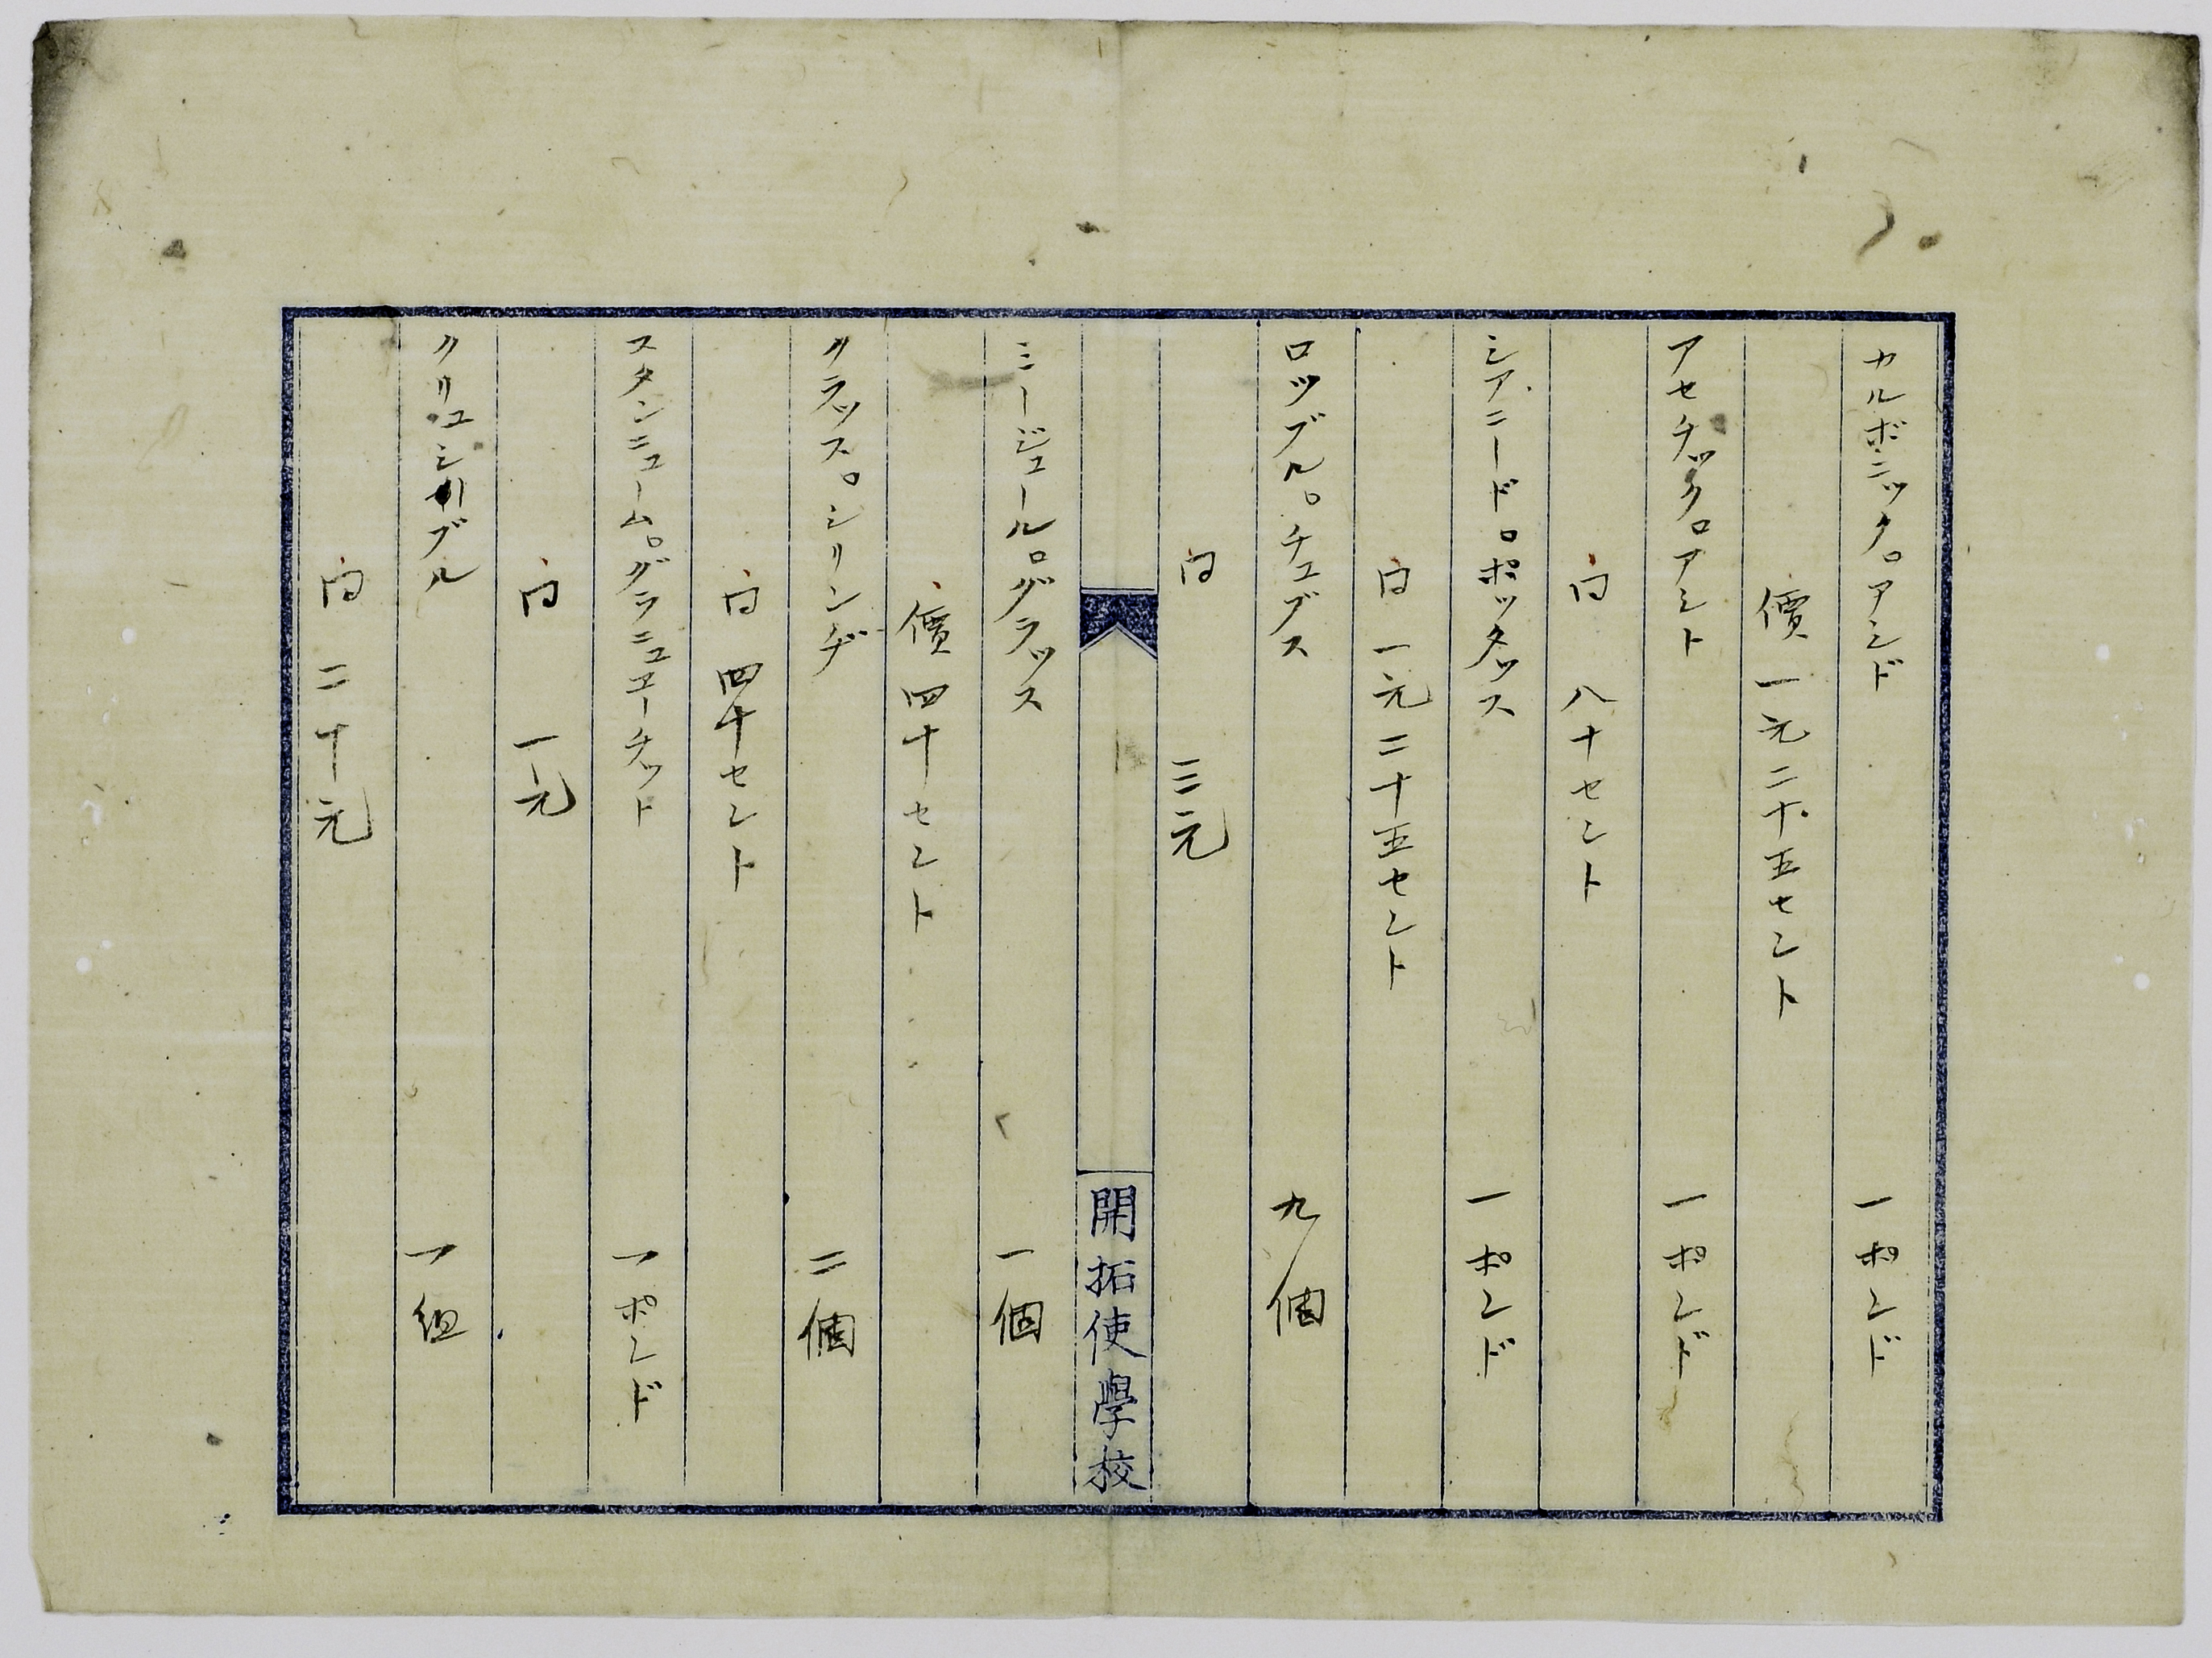 カルボニック。アシド 一ポンド
價 一元二十五セント
アセチック。アシト 一ポンド
同 八十セント
シアニード。ポッタッス 一ポンド
同 一元二十五セント
ロツブル。チュブス 九個
同 三元
開拓使學校
ミージュール。グラッス 一個
價 四十セント
グラッス。シリンヂ 二個
同 四十セント
スタンニューム。グラニュエーチット 一ポンド
同 一元
クリュシブル 一組
同 二十元